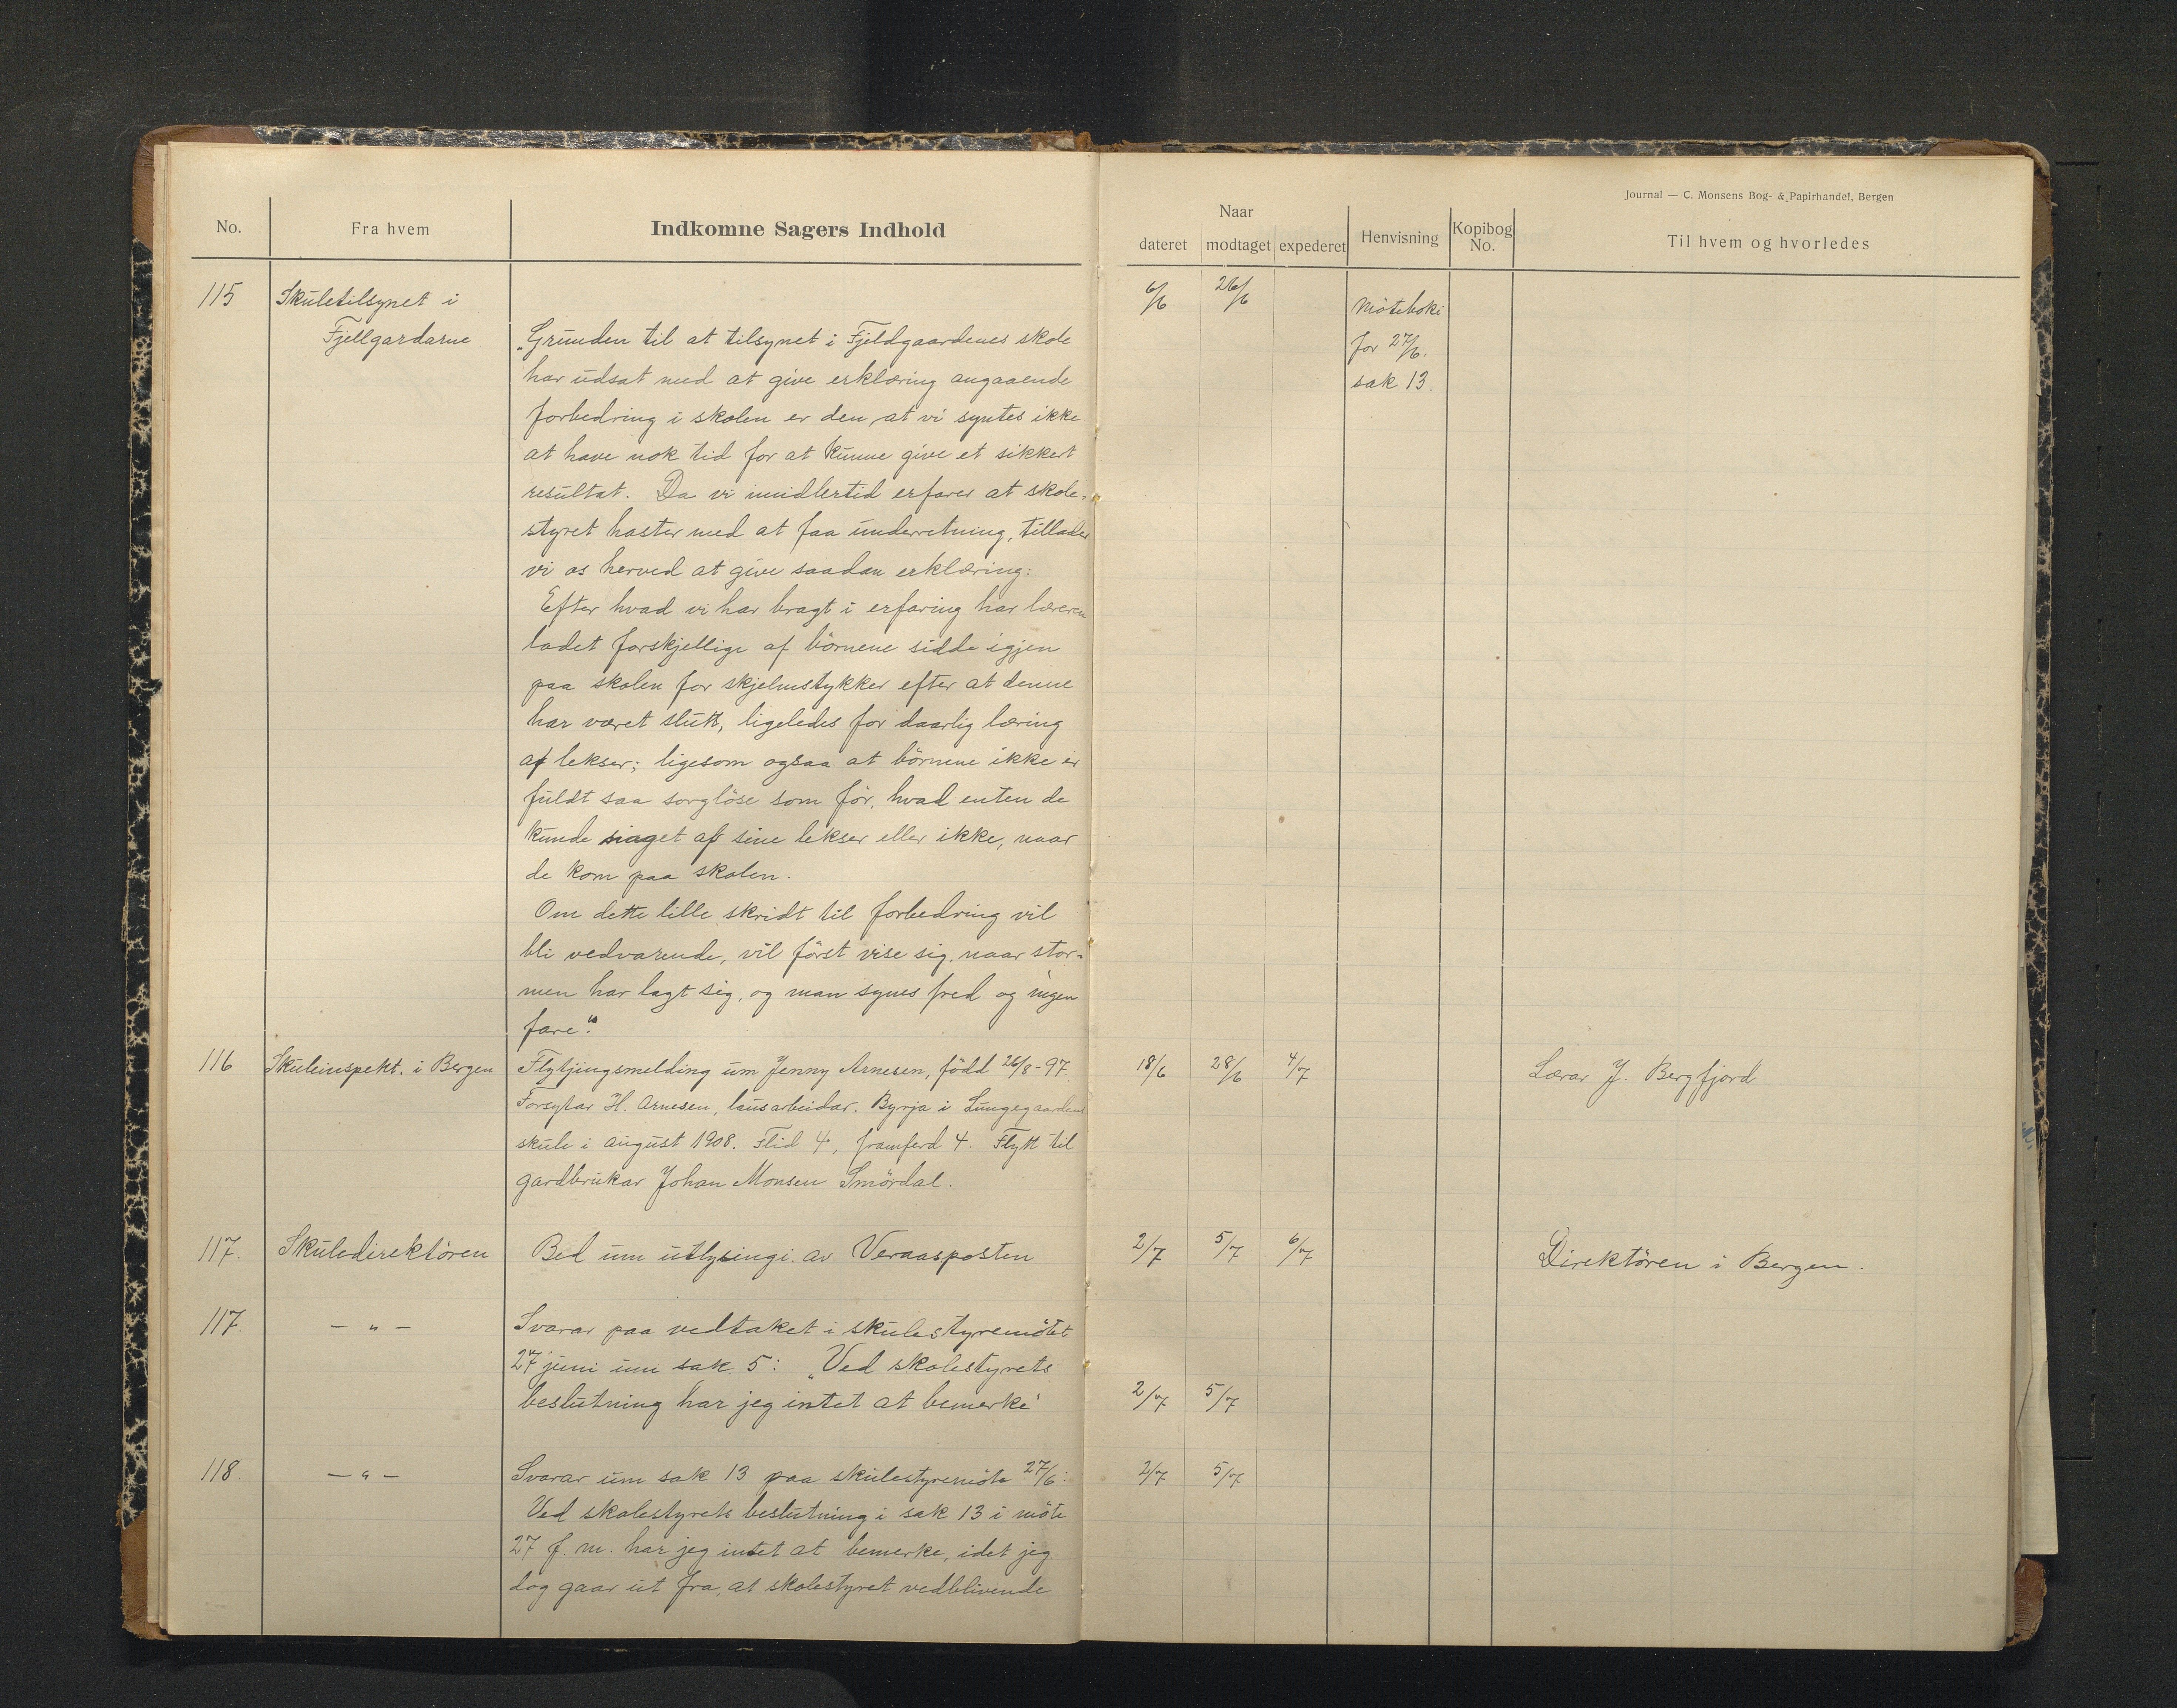 Journal — C. Monsens Bog- & Papirhandel, Bergen
No.
Fra hvem
Indkomne Sagers Indhold
Naar
dateret
modtaget
expederet
Henvisning
Kopibog No.
Til hvem og hvorledes
115
Skuletilsynet i
Fjellgardarne
6/6
26/6
Møteboki
for 27/6.
sak 13.
„Grunden til at tilsynet i Fjeldgaardenes skole
har udsat med at give erklæring angaaende
forbedring i skolen er den, at vi syntes ikke
at have nok tid for at kunne give et sikkert
resultat. Da vi imidlertid erfarer at skole-
styret haster med at faa underretning, tillader
vi os herved at give saadan erklæring:
Efter hvad vi har bragt i erfaring har læreren
ladet forskjellige af börnene sidde igjen
paa skolen for skjelmstykker efter at denne
har været slutt, ligeledes for daarlig læring
af lekser; ligesom ogsaa at börnene ikke er
fuldt saa sorglöse som för, hvad enten de
kunde noget af sine lekser eller ikke, naar
de kom paa skolen.
Om dette lille skridt til forbedring vil
bli vedvarende, vil först vise sig, naar stor-
men har lagt sig, og man synes fred og ingen
fare."
116
Skuleinspekt. i Bergen
Flytjingsmelding um Jenny Arnesen, född 26/8-97.
18/6
28/6
4/7
Lærar J. Bergfjord
Forsytar H. Arnesen, lausarbeidar. Byrja i Lungegaardens
skule i august 1908. Flid 4, framferd 4. Flytt til
gardbrukar Johan Monsen Smördal.
117.
Skuledirektören
Bed um utlysingi av Veraasposten
2/7
5/7
6/7
Direktören i Bergen.
117.
— „ —
Svarar paa vedtaket i skulestyremötet
27 juni um sak 5: „Ved skolestyrets
beslutning har jeg intet at bemerke"
2/7
5/7
118.
— „ —
Svarar um sak 13 paa skulestyremöte 27/6:
2/7
5/7
Ved skolestyrets beslutning i sak 13 i möte
27 f. m. har jeg intet at bemerke, idet jeg
dog gaar ut fra, at skolestyret vedblivende